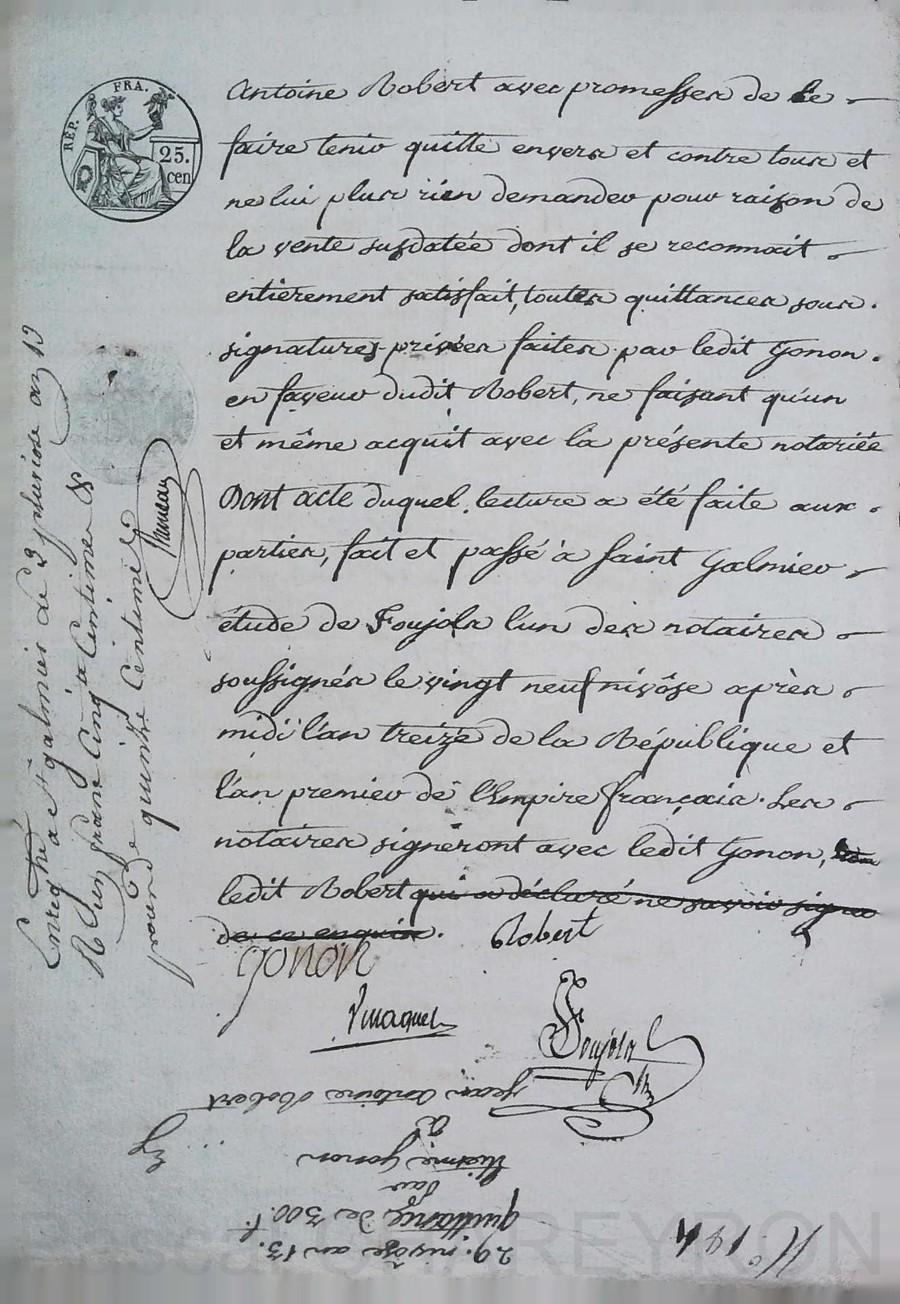 RÉP. FRA.
25.
cen
Antoine Robert avec promesses de le
faire tenir quitte envers et contre tous et
ne lui plus rien demander pour raison de
la vente susdatée dont il se reconnait
entièrement satisfait, toutes quittances sous
signatures privées faites par ledit Gonon
en faveur dudit Robert, ne faisant qu'un
et même acquit avec la présente notariée
Dont acte duquel lecture a été faite aux
parties, fait et passé à Saint Galmier
étude de Foujols l'un des notaires
soussignés le vingt neuf nivôse après
midi l'an treize de la République et
l'an premier de l'Empire français. Les
notaires signeront avec ledit Gonon,
ledit Robert qui a déclaré ne savoir signer
de ce enquis.
Robert
Gonon
Foujols
Enregtré à St galmier le 3 pluviose an 13
Reçu un franc cinq centimes &
quinze centimes
29. nivôse an 13.
quittance de 300 f.
par
Etienne Gonon
à
Jean Antoine Robert
N.° 144
Pascal CHAREYRON